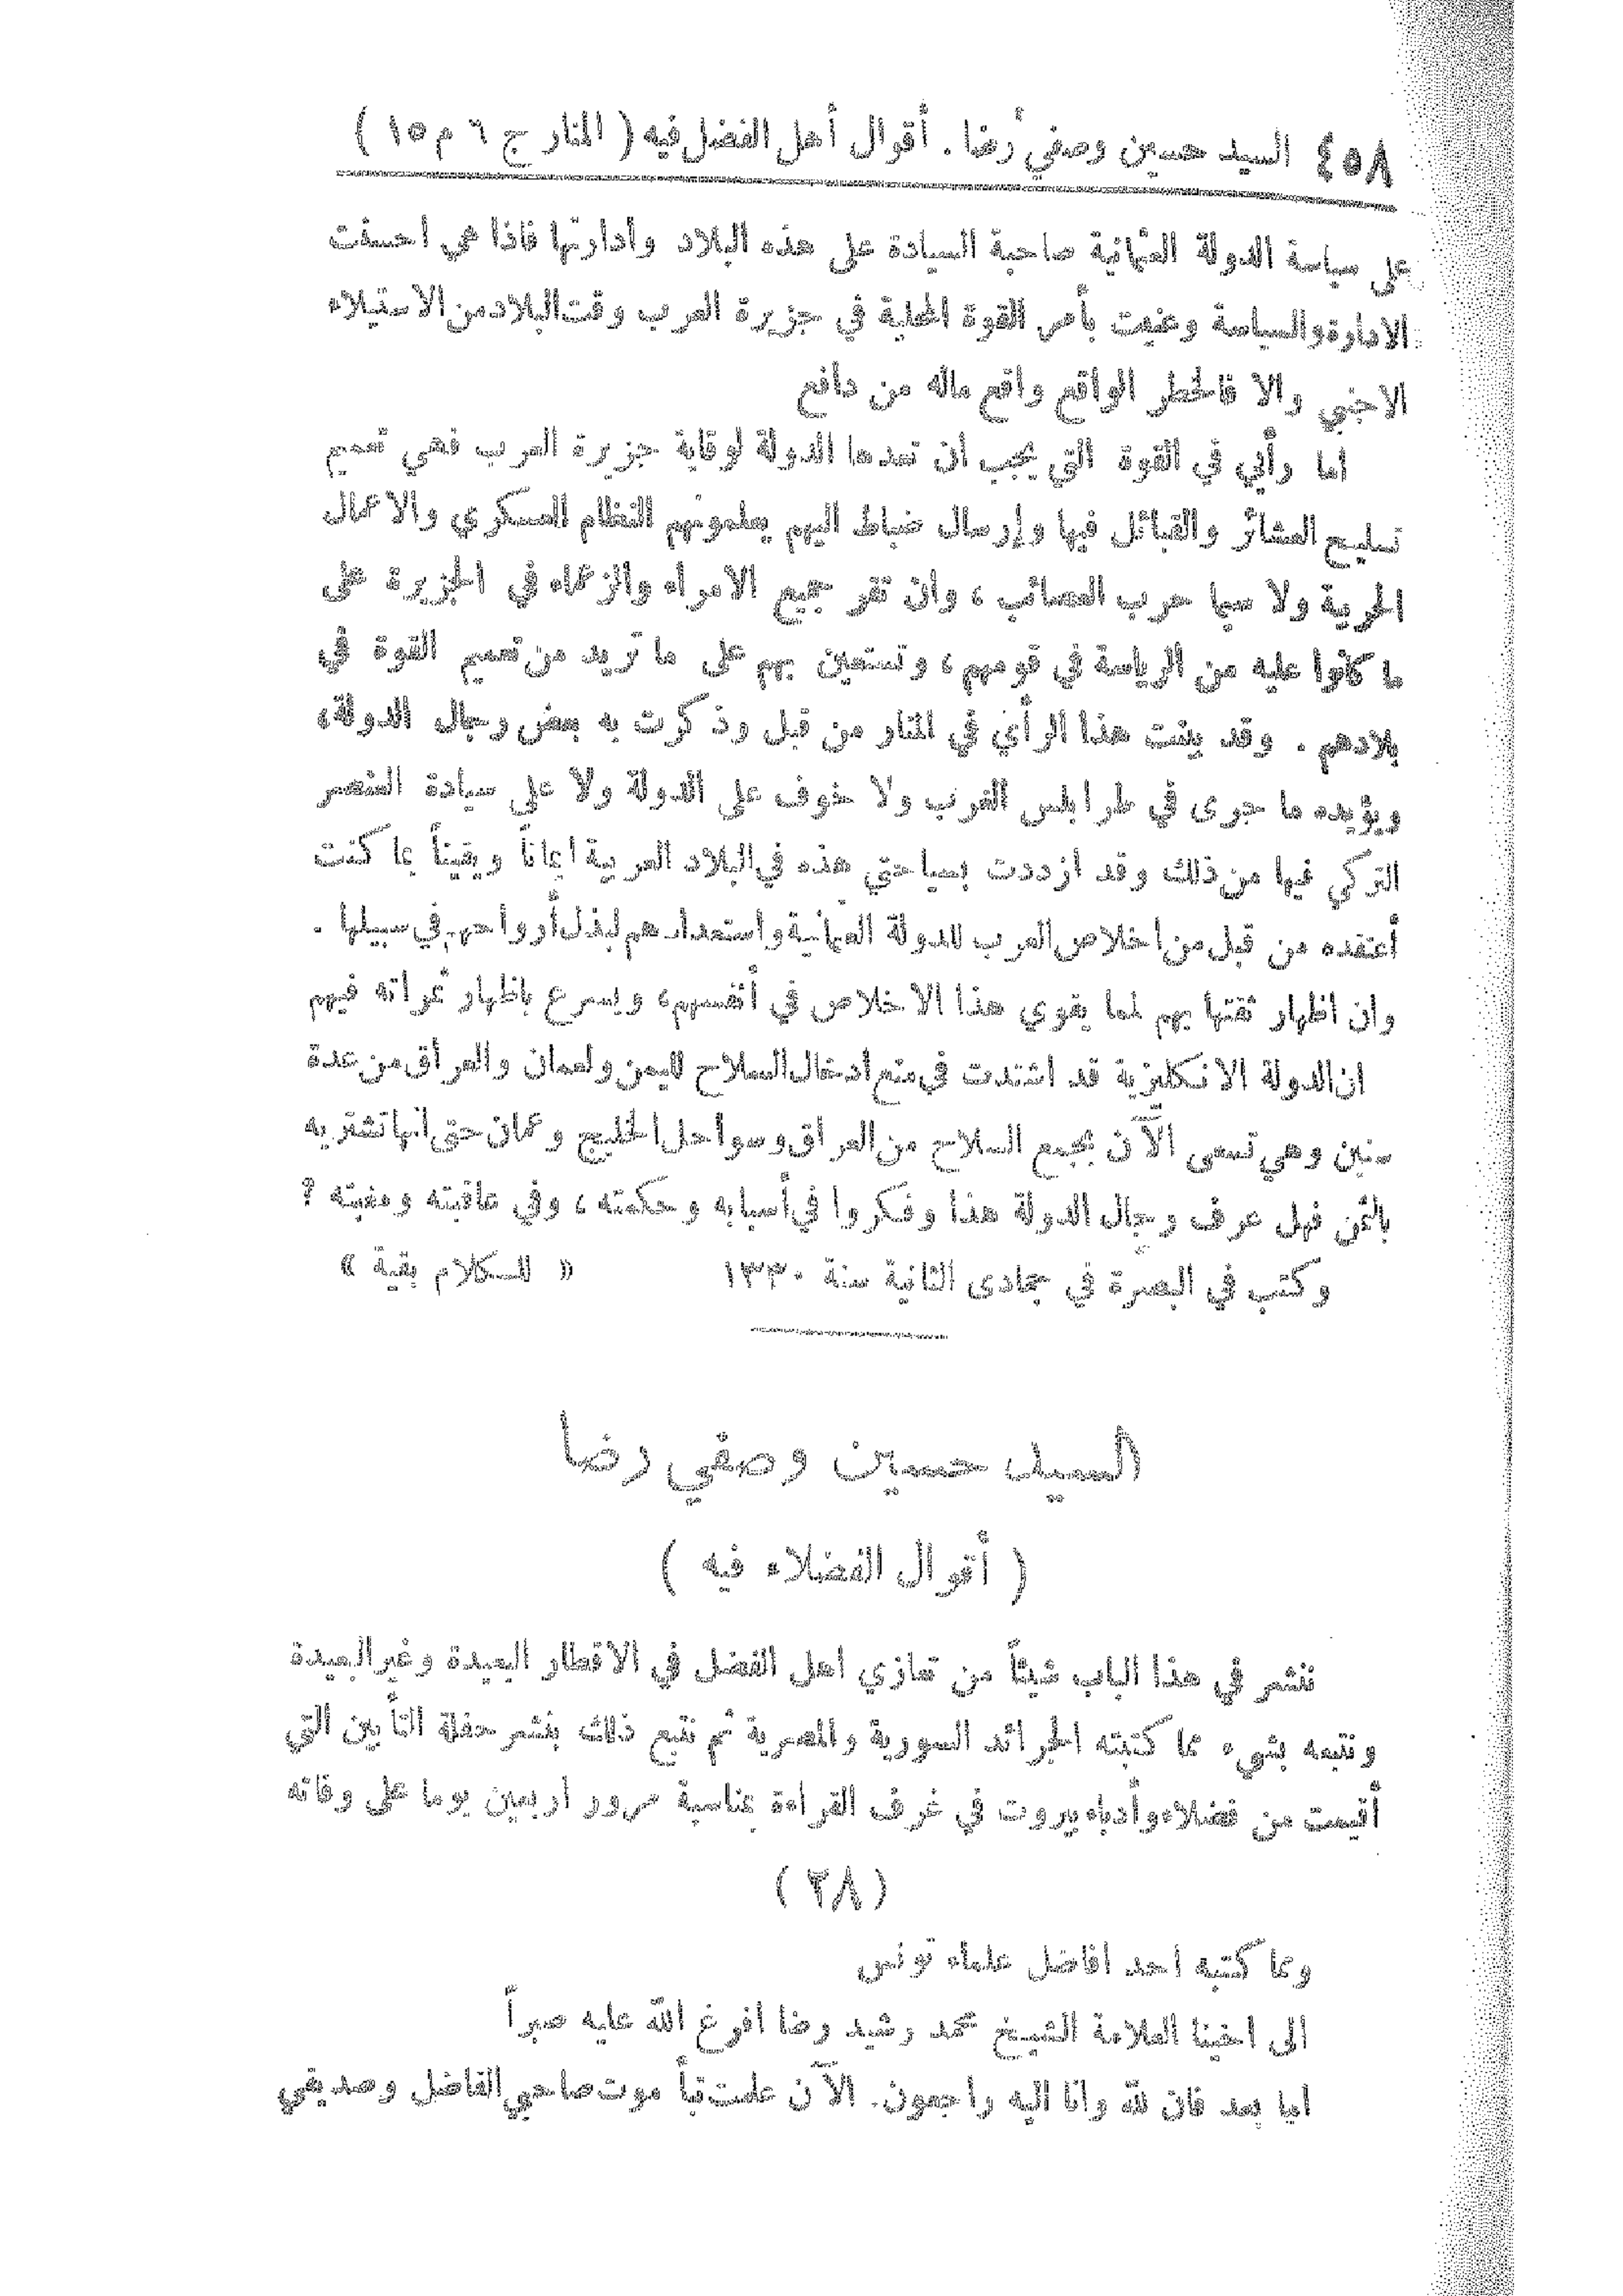 ٤٥٨ السيد حسين وصفي رضا . أقوال أهل الفضل فيه ( المنار ج ٦ م ١٥ )
على سياسة الدولة العثمانية صاحبة السيادة على هذه البلاد وادارتها فاذا هي احسنت
الادارة والسياسة وعنيت بأمر القوة المحلية في جزيرة العرب وقت البلاد من الاستيلاء
الاجنبي والا فالخطر الواقع واقع ماله من دافع
أما رأيي في القوة التي يجب ان تعدها الدولة لوقاية جزيرة العرب فهي تعميم
تسليح العشائر والقبائل فيها وإرسال ضباط اليهم يعلمونهم النظام العسكري والاعمال
الحربية ولا سيما حرب العصائب ، وان تقر جميع الامراء والزعماء في الجزيرة على
ما كانوا عليه من الرياسة في قومهم ، وتستعين بهم على ما تريد من تعميم القوة في
بلادهم . وقد بينت هذا الرأي في المنار من قبل وذكرت به بعض رجال الدولة ،
ويؤيده ما جرى في طرابلس الغرب ولا خوف على الدولة ولا على سيادة العنصر
التركي فيها من ذلك وقد ازددت بسياحتي هذه في البلاد العربية ايماناً ويقيناً بما كنت
أعتقده من قبل من اخلاص العرب للدولة العثمانية واستعدادهم لبذل أرواحهم في سبيلها .
وان اظهار ثقتها بهم لمما يقوي هذا الاخلاص في أنفسهم ، ويسرع باظهار ثمراته فيهم
ان الدولة الانكليزية قد اشتدت في منع ادخال السلاح لليمن ولعمان والعراق من عدة
سنين وهي تسعى الآن بجمع السلاح من العراق وسواحل الخليج وعمان حتى انها تشتريه
بالثمن فهل عرف رجال الدولة هذا وفكروا في أسبابه وحكمته ، وفي عاقبته ومغبته ؟
وكتب في البصرة في جمادى الثانية سنة ١٣٣٠ « للكلام بقية »
السيد حسين وصفي رضا
( أقوال الفضلاء فيه )
ننشر في هذا الباب شيئاً من تعازي اهل الفضل في الاقطار البعيدة وغير البعيدة
ونتبعه بشيء مما كتبته الجرائد السورية والمصرية ثم نتبع ذلك بنشر حفلة التأبين التي
أقيمت من فضلاء وأدباء بيروت في غرف القراءة بمناسبة مرور اربعين يوما على وفاته
( ٢٨ )
ومما كتبه احد افاضل علماء تونس
الى اخينا العلامة الشيخ محمد رشيد رضا افرغ الله عليه صبراً
اما بعد فان لله وانا اليه راجعون . الآن علمت نبأ موت صاحبي الفاضل وصديقي